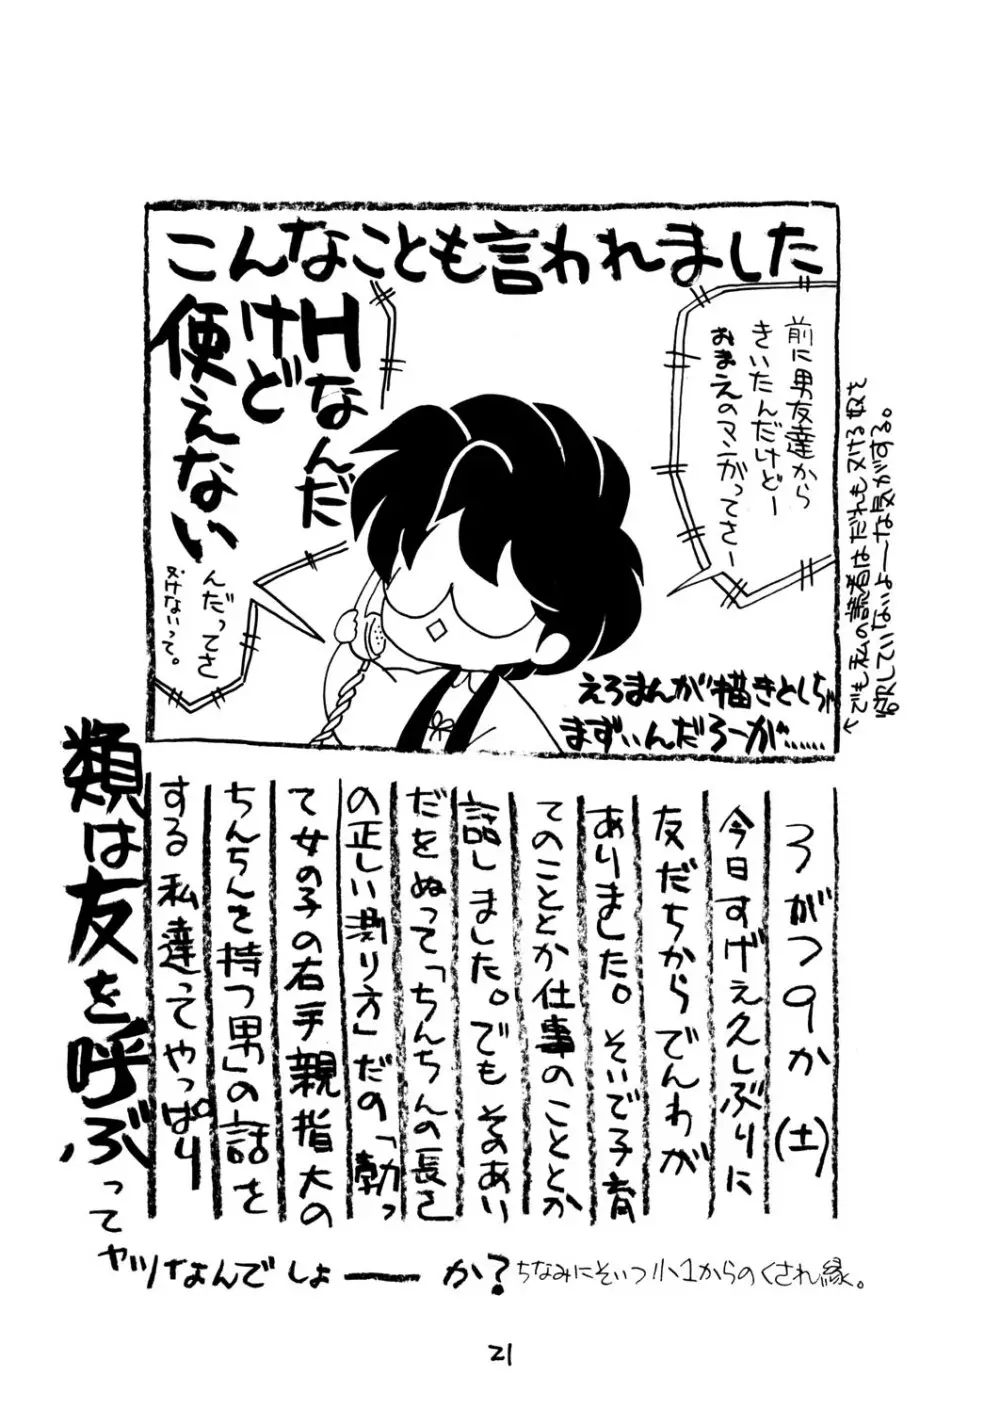 こんなことも言われました
前に男友達から
きいたんだけどー
おまえのマンガってさー
Hなんだ
けど
使えない
んだってさ
ヌけないって。
えろまんが描きとしちゃ
まずいんだろーが……
←でも私の読者はだれもヌける奴を
欲していないよーな気がする。
3がつ9か(土)
今日すげえ久しぶりに
友だちからでんわが
ありました。そいで子育
てのこととか仕事のこととか
話しました。でもそのあい
だをぬって「ちんちんの長さ
の正しい測り方」だの「勃っ
て女の子の右手親指大の
ちんちんを持つ男」の話を
する私達ってやっぱり
類は友を呼ぶって
ヤツなんでしょーーか?
ちなみにそいつ小1からのくされ縁。
21